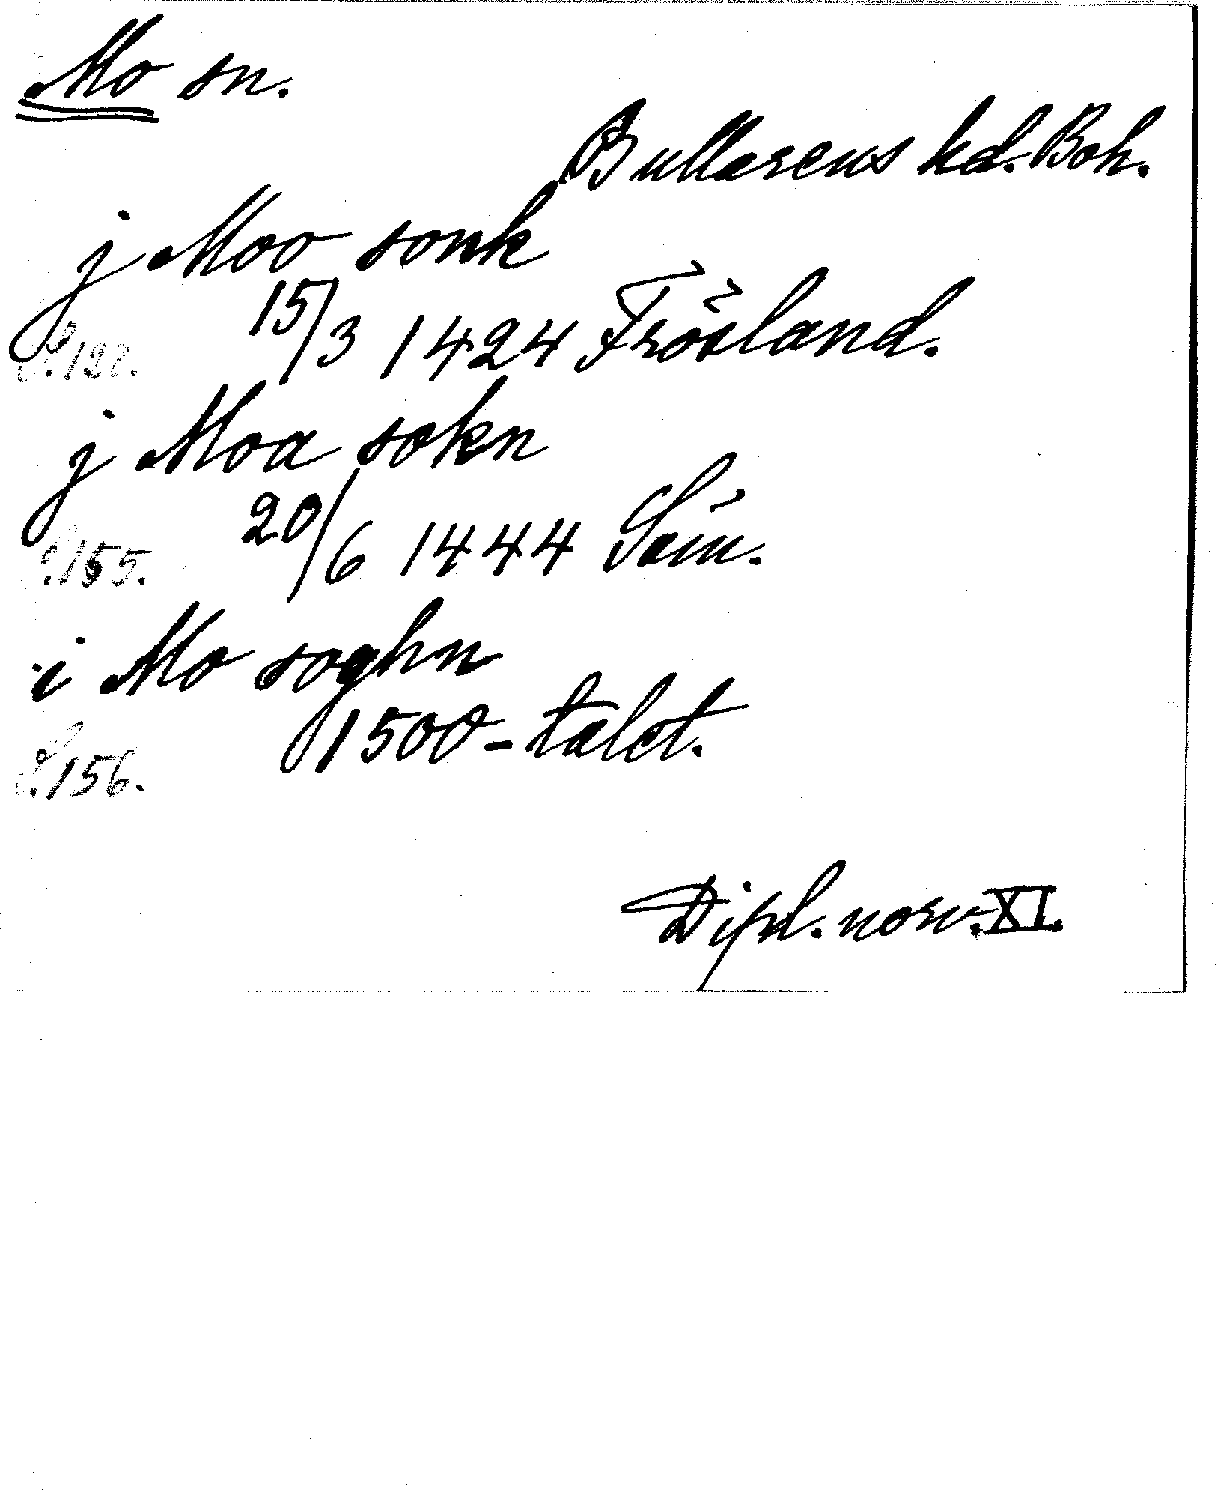 Mo sn.
Bullarens hd. Boh.
j Moo sonk
15/3 1424 Frösland.
S. 128.
j Moa sokn
20/6 1444 Sæm.
S. 155.
i Mo soghn
1500-talet.
S. 156.
Dipl. norv. XI.